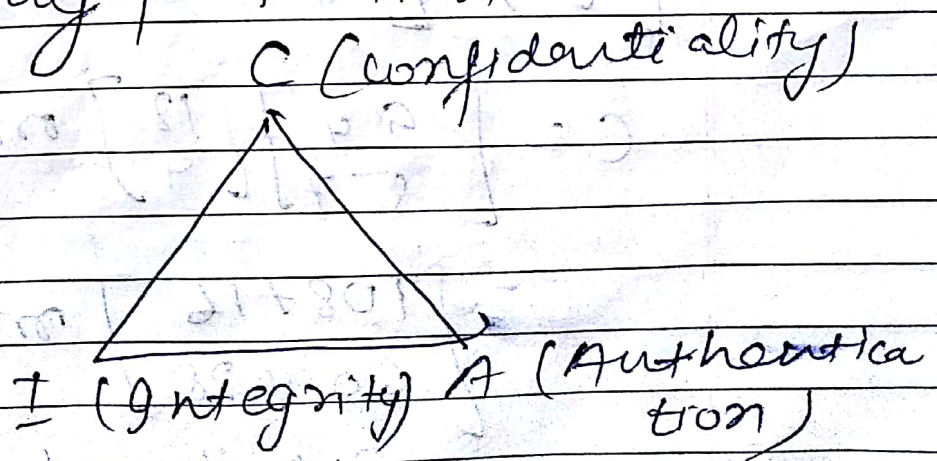 C (Confidentiality)
I (Integrity) A (Authentica
tion)